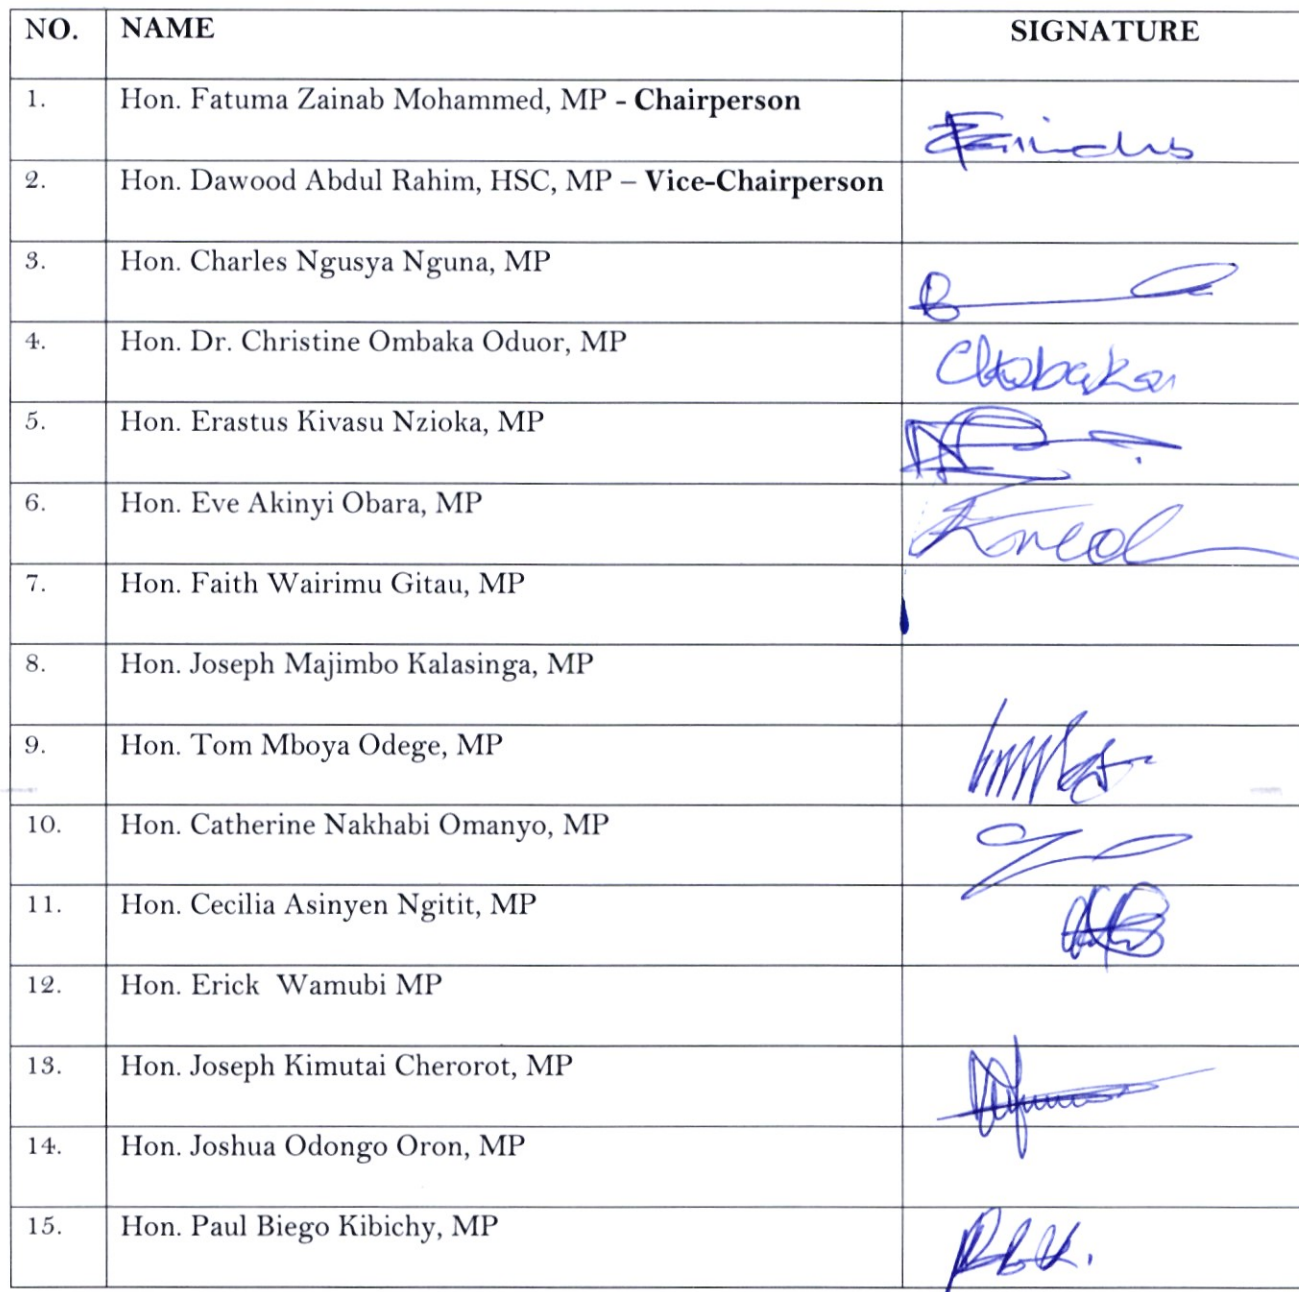 NO. NAME SIGNATURE
1. Hon. Fatuma Zainab Mohammed, MP - Chairperson
2. Hon. Dawood Abdul Rahim, HSC, MP – Vice-Chairperson
3. Hon. Charles Ngusya Nguna, MP
4. Hon. Dr. Christine Ombaka Oduor, MP
5. Hon. Erastus Kivasu Nzioka, MP
6. Hon. Eve Akinyi Obara, MP
7. Hon. Faith Wairimu Gitau, MP
8. Hon. Joseph Majimbo Kalasinga, MP
9. Hon. Tom Mboya Odege, MP
10. Hon. Catherine Nakhabi Omanyo, MP
11. Hon. Cecilia Asinyen Ngitit, MP
12. Hon. Erick  Wamubi MP
13. Hon. Joseph Kimutai Cherorot, MP
14. Hon. Joshua Odongo Oron, MP
15. Hon. Paul Biego Kibichy, MP